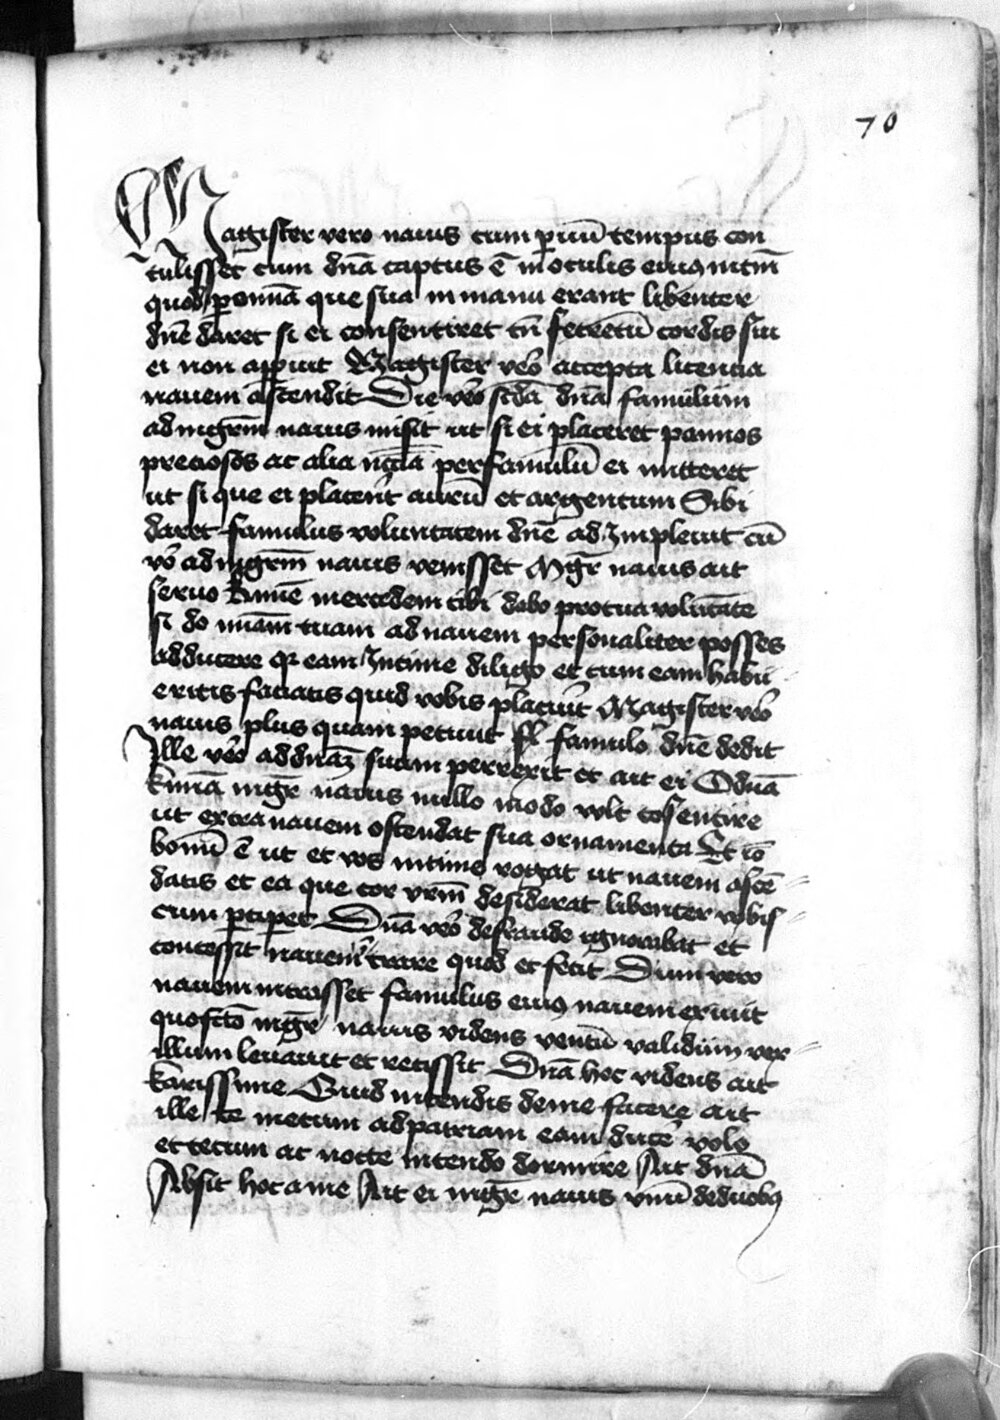 70
Magister vero navis cum parvū tempus con
tulisset cum dn̄a captus ē in oculis eius intm̄
quod omnia que sua in manu erant libenter
dn̄e daret si ei consentiret tn̄ secretū cordis sui
ei non apuit Magister vēo accepta licencia
navem ascendit Die vēo scd̄a dn̄a famulum
ad mgr̄m navis misit ut si ei placeret pannos
preciosos ac alia per famulū ei mitteret
ut si que ei placer̄nt aurū et argentum Sibi
daret famulus voluntatem dn̄e ad Implevit cū
vō ad mgr̄m navis venisset Mgr̄ navis ait
servo mercedem tibi dabo pro tua volūtate
si do nūam tuam ad navem personaliter posses
adducere qr eam Intime diligo et cum eam habu
eritis faciatis quid vobis placuīt Magister vēo
navis plus quam petivit famulo dn̄e dedit
Ille vēo ad dn̄aʒ suam perrexit et ait ei O dn̄a
mgr̄ navis nullo modo vlt cōsentire
ut extra navem ostendat sua ornamenta Et iō
bonū ē ut et vos intime rogat ut navem ascē
datis et ea que cor vr̄m desiderat libenter vobis
cum ptipet Dn̄a vēo de fraude ignorabat et
concessit navem ītrare quod et fecit Dum vero
navem intrasset famulus eius navem exivit
quo fct̄o mgr̄ navis videns ventū validum ver
illum levavit et recessit Dn̄a hoc videns ait
karissime Quid intendis de me facere ait
ille te mecum ad patriam eam ducē volo
et tecum ac nocte intendo dormire Ait dn̄a
Absit hoc a me Ait ei mgr̄ navis unū de duobus